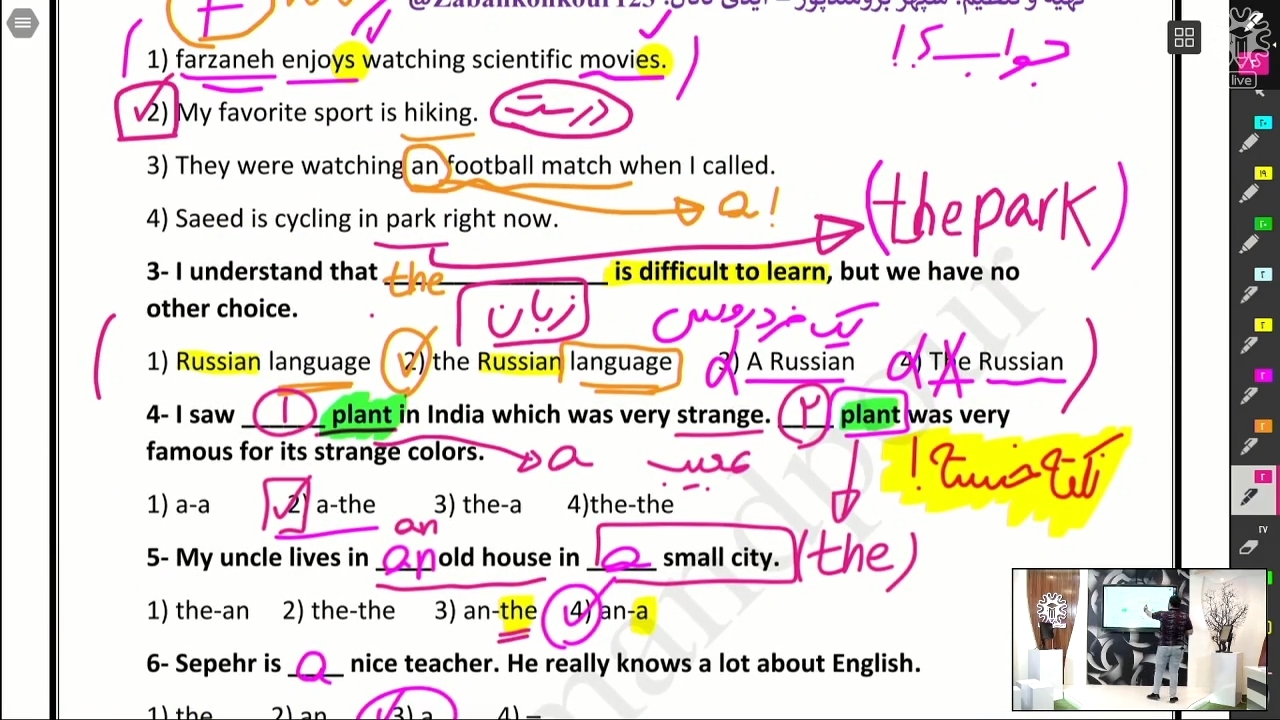 تهیه و تنظیم: سپهر برومندپور – آیدی کانال: @Zabankonkour123
1) farzaneh enjoys watching scientific movies.
جواب؟!
live
2) My favorite sport is hiking. درست
3) They were watching an football match when I called.
a!
(the park)
4) Saeed is cycling in park right now.
3- I understand that the ____________ is difficult to learn, but we have no
other choice.
زبان
یک خرد روس
1) Russian language 2) the Russian language 3) A Russian 4) The Russian
4- I saw ___۱___ plant in India which was very strange. ___۲___ plant was very
famous for its strange colors.
a
عجیب
نکته چیست!
1) a-a 2) a-the 3) the-a 4)the-the
an
5- My uncle lives in an old house in a small city. (the)
1) the-an 2) the-the 3) an-the 4) an-a
6- Sepehr is a nice teacher. He really knows a lot about English.
1) the 2) an 3) a 4) –